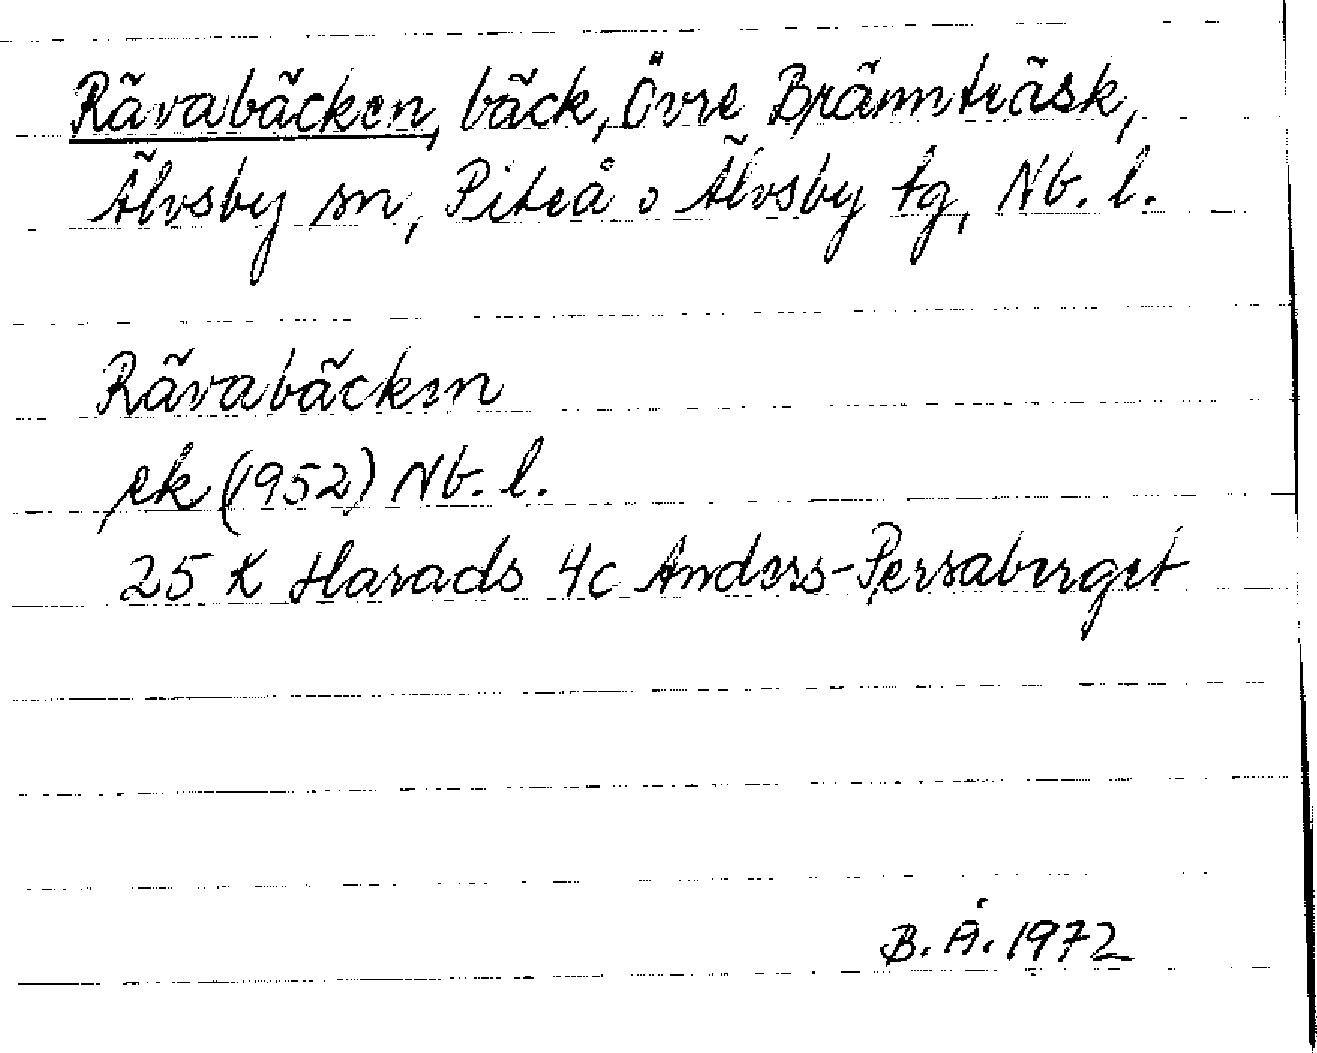 Rävabäcken, bäck, Övre Brännträsk,
Älvsby sn, Piteå o Älvsby tg, Nb. l.
Rävabäcken
ek (1952) Nb. l.
25 K Harads 4c Anders-Persaberget
B. Å. 1972